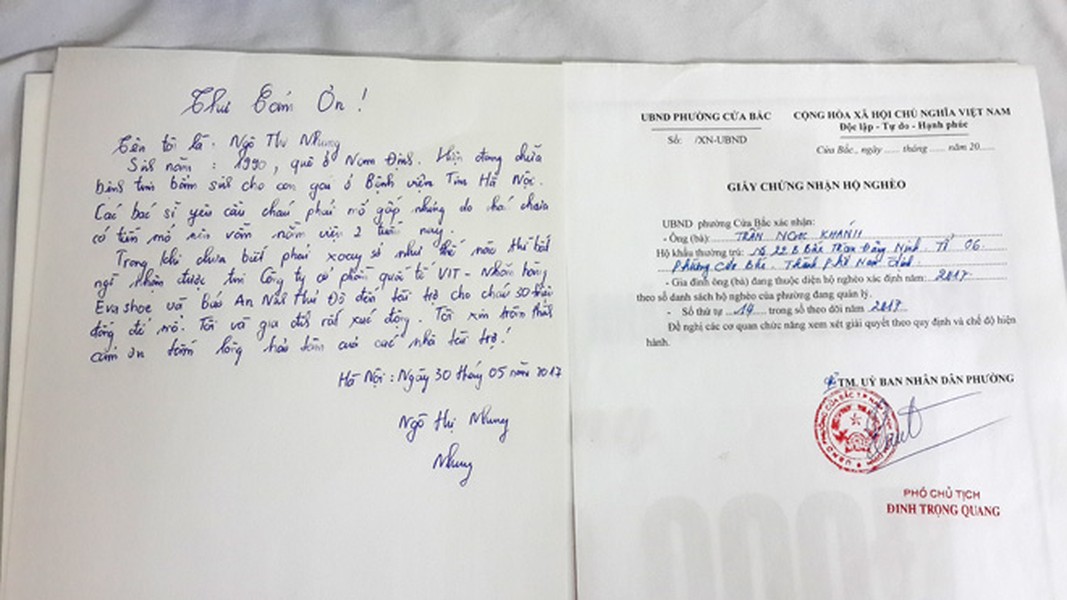 Thư Cảm Ơn !
Tên tôi là : Ngô Thị Nhung
Sinh năm : 1990, quê ở Nam Định. Hiện đang chữa
bệnh tim bẩm sinh cho con gái ở Bệnh viện Tim Hà Nội.
Các bác sĩ yêu cầu cháu phải mổ gấp nhưng do nhà chưa
có tiền mổ nên vẫn nằm viện 2 tuần nay.
Trong khi chưa biết phải xoay sở như thế nào thì bất
ngờ nhận được tin Công ty cổ phần quốc tế VIT - Nhãn hàng
Evashoe và báo An Ninh Thủ Đô đến tài trợ cho cháu 30 triệu
đồng để mổ. Tôi và gia đình rất xúc động. Tôi xin chân thành
cảm ơn tấm lòng hảo tâm của các nhà tài trợ !
Hà Nội : Ngày 30 tháng 05 năm 2017
Ngô Thị Nhung
Nhung
UBND PHƯỜNG CỬA BẮC
Số: /XN-UBND
CỘNG HÒA XÃ HỘI CHỦ NGHĨA VIỆT NAM
Độc lập - Tự do - Hạnh phúc
Cửa Bắc, ngày ...... tháng ...... năm 20......
GIẤY CHỨNG NHẬN HỘ NGHÈO
UBND phường Cửa Bắc xác nhận:
- Ông (bà): TRẦN NGỌC KHANH
Hộ khẩu thường trú: Số 22B Bắc Trần Đăng Ninh. Tổ 06.
Phường Cửa Bắc. Thành Phố Nam Định.
- Gia đình ông (bà) đang thuộc diện hộ nghèo xác định năm: 2017
theo số danh sách hộ nghèo của phường đang quản lý.
- Số thứ tự ...19... trong sổ theo dõi năm 2017
Đề nghị các cơ quan chức năng xem xét giải quyết theo quy định và chế độ hiện
hành.
TM. UỶ BAN NHÂN DÂN PHƯỜNG
PHÓ CHỦ TỊCH
ĐINH TRỌNG QUANG